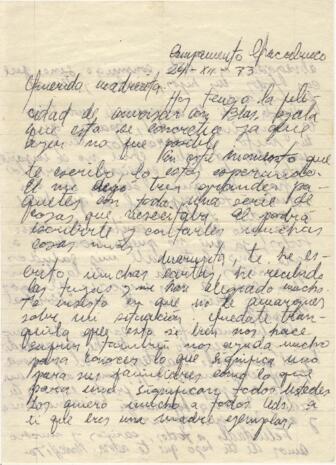 Campamento Chacabuco
24-XII-73
Querida madrecita:
Hoy tengo la feli
cidad de conversar con Blas, ojalá
que esta se concrete ya que
ayer no fue posible
En este momento que
te escribo lo estoy esperando.
El me dejó tres grandes pa-
quetes con toda una serie de
cosas que necesitaba. El podrá
escribirte y contarles muchas
cosas más.
Mamita, te he es-
crito muchas cartas, he recibido
las tuyas y me han alegrado mucho
Te insisto en que no te amargues
sobre mi situación. Quédate tran-
quila pues esto si bien nos hace
sufrir también nos ayuda mucho
para conocer lo que significa uno
para sus familiares como lo que
para uno significan todos ustedes
Los quiero mucho a todos Uds. a
ti que eres una madre ejemplar,